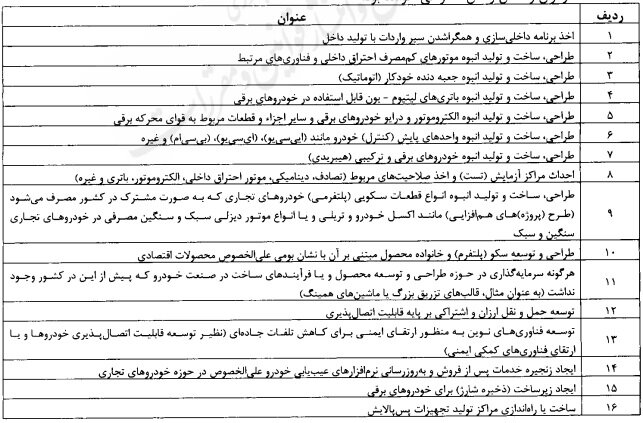 ردیف عنوان
۱ اخذ برنامه داخلی‌سازی و همگراشدن سیر واردات با تولید داخل
۲ طراحی، ساخت و تولید انبوه موتورهای کم‌مصرف احتراق داخلی و فناوری‌های مرتبط
۳ طراحی، ساخت و تولید انبوه جعبه دنده خودکار (اتوماتیک)
۴ طراحی، ساخت و تولید انبوه باتری‌های لیتیوم - یون قابل استفاده در خودروهای برقی
۵ طراحی، ساخت و تولید انبوه الکتروموتور و درایو خودروهای برقی و سایر اجزاء و قطعات مربوط به قوای محرکه برقی
۶ طراحی، ساخت و تولید انبوه واحدهای پایش (کنترل) خودرو مانند (ایی‌سی‌یو)، (ای‌سی‌یو)، (بی‌سی‌ام) و غیره
۷ طراحی، ساخت و تولید انبوه خودروهای برقی و ترکیبی (هیبریدی)
۸ احداث مراکز آزمایش (تست) و اخذ صلاحیت‌های مربوط (تصادف، دینامیکی، موتور احتراق داخلی، الکتروموتور، باتری و غیره)
طراحی، ساخت و تولید انبوه انواع قطعات سکویی (پلتفرمی) خودروهای تجاری که به صورت مشترک در کشور مصرف می‌شود
۹ (طرح (پروژه)های هم‌افزایی) مانند اکسل خودرو و تریلی و یا انواع موتور دیزلی سبک و سنگین مصرفی در خودروهای تجاری
سنگین و سبک
۱۰ طراحی و توسعه سکو (پلتفرم) و خانواده محصول مبتنی بر آن با نشان بومی علی‌الخصوص محصولات اقتصادی
۱۱ هرگونه سرمایه‌گذاری در حوزه طراحی و توسعه محصول و یا فرآیندهای ساخت در صنعت خودرو که پیش از این در کشور وجود
نداشت (به عنوان مثال، قالب‌های تزریق بزرگ یا ماشین‌های همینگ)
۱۲ توسعه حمل و نقل ارزان و اشتراکی بر پایه قابلیت اتصال‌پذیری
۱۳ توسعه فناوری‌های نوین به منظور ارتقای ایمنی برای کاهش تلفات جاده‌ای (نظیر توسعه قابلیت اتصال‌پذیری خودروها و یا
ارتقای فناوری‌های کمکی ایمنی)
۱۴ ایجاد زنجیره خدمات پس از فروش و به‌روزرسانی نرم‌افزارهای عیب‌یابی خودرو علی‌الخصوص در حوزه خودروهای تجاری
۱۵ ایجاد زیرساخت (ذخیره شارژ) برای خودروهای برقی
۱۶ ساخت یا راه‌اندازی مراکز تولید تجهیزات پس‌پالایش